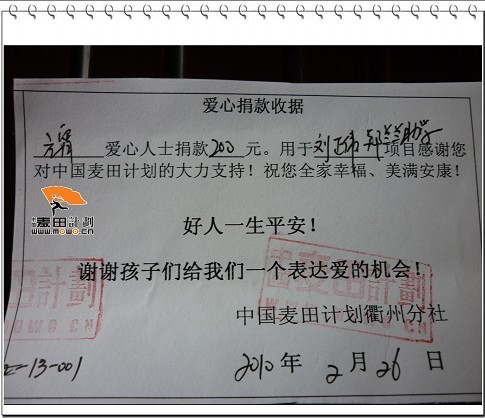 爱心捐款收据
爱心人士捐款200元。用于刘正伟 郑兰兰助学项目感谢您
对中国麦田计划的大力支持！祝您全家幸福、美满安康！
麦田計劃
www.mowo.cn
好人一生平安！
谢谢孩子们给我们一个表达爱的机会！
麦田計劃
田計劃
中国麦田计划衢州分社
-13-001
2010年 2月26日